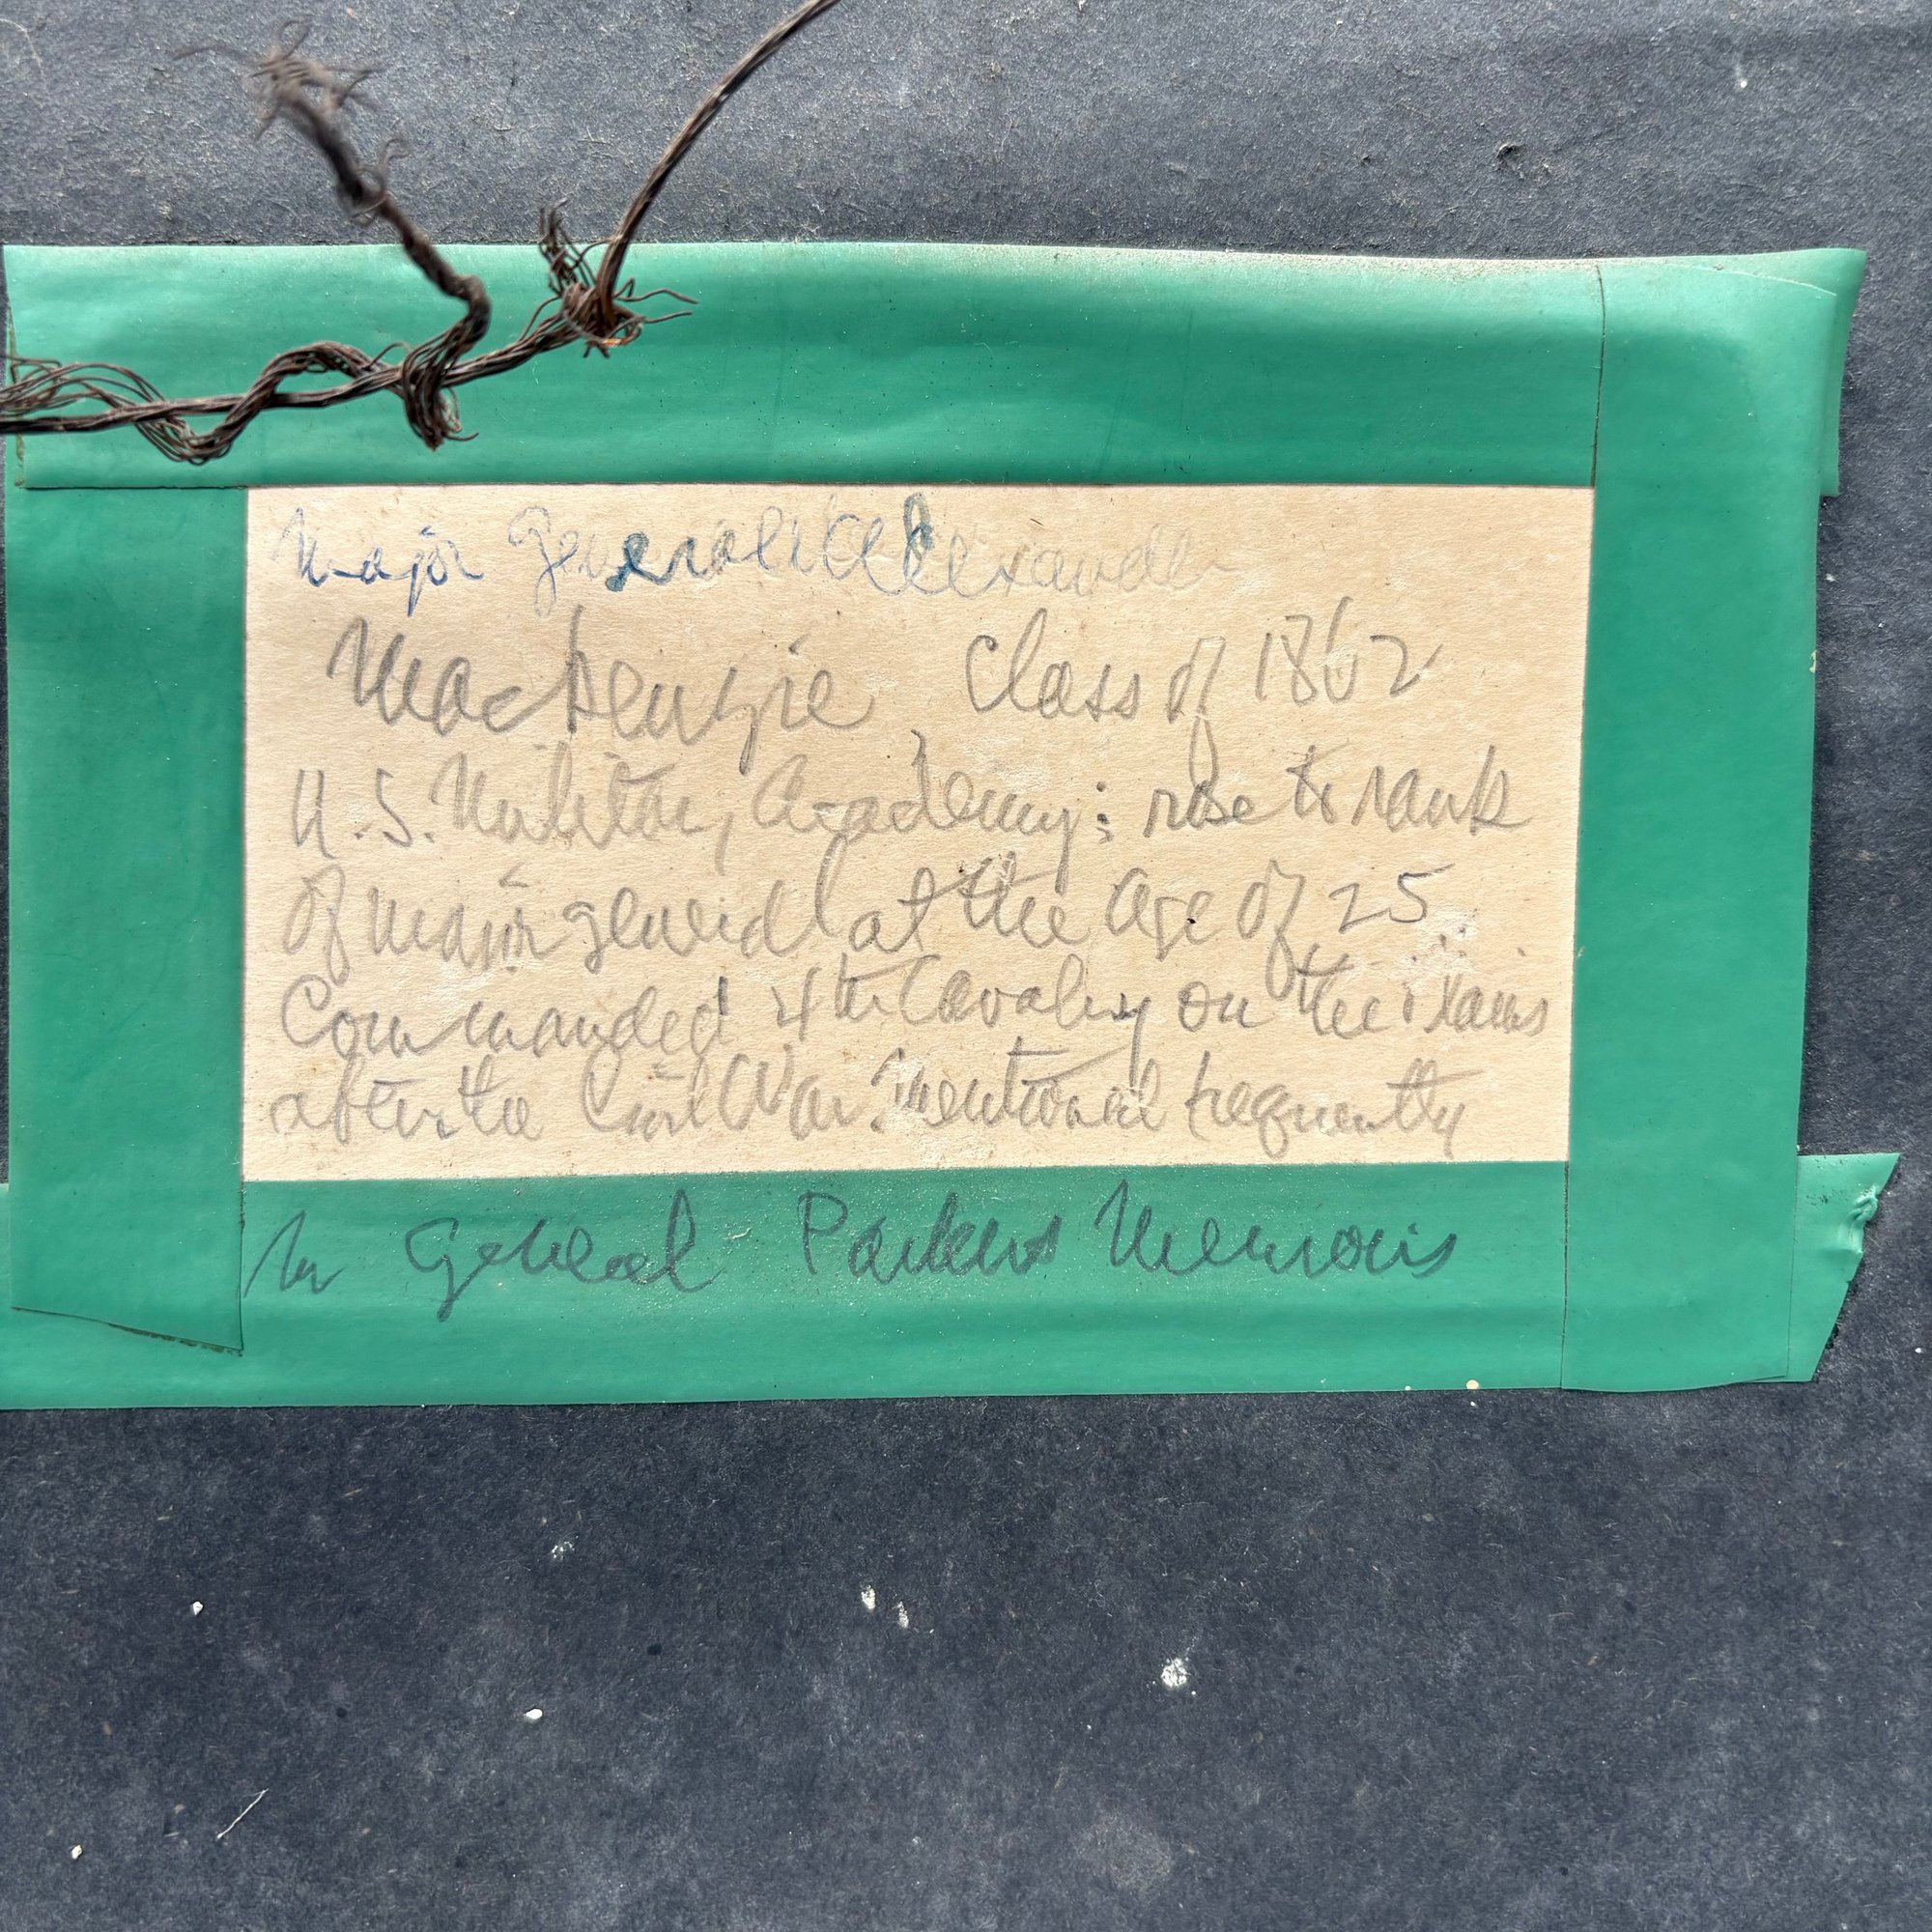 Major General Alexander
Mackenzie Class of 1862
U.S. Military Academy; rose to rank
of major general at the age of 25
Commanded 4th Cavalry on the plains
after the Civil War. Mentioned frequently
in General Parkers Memoirs